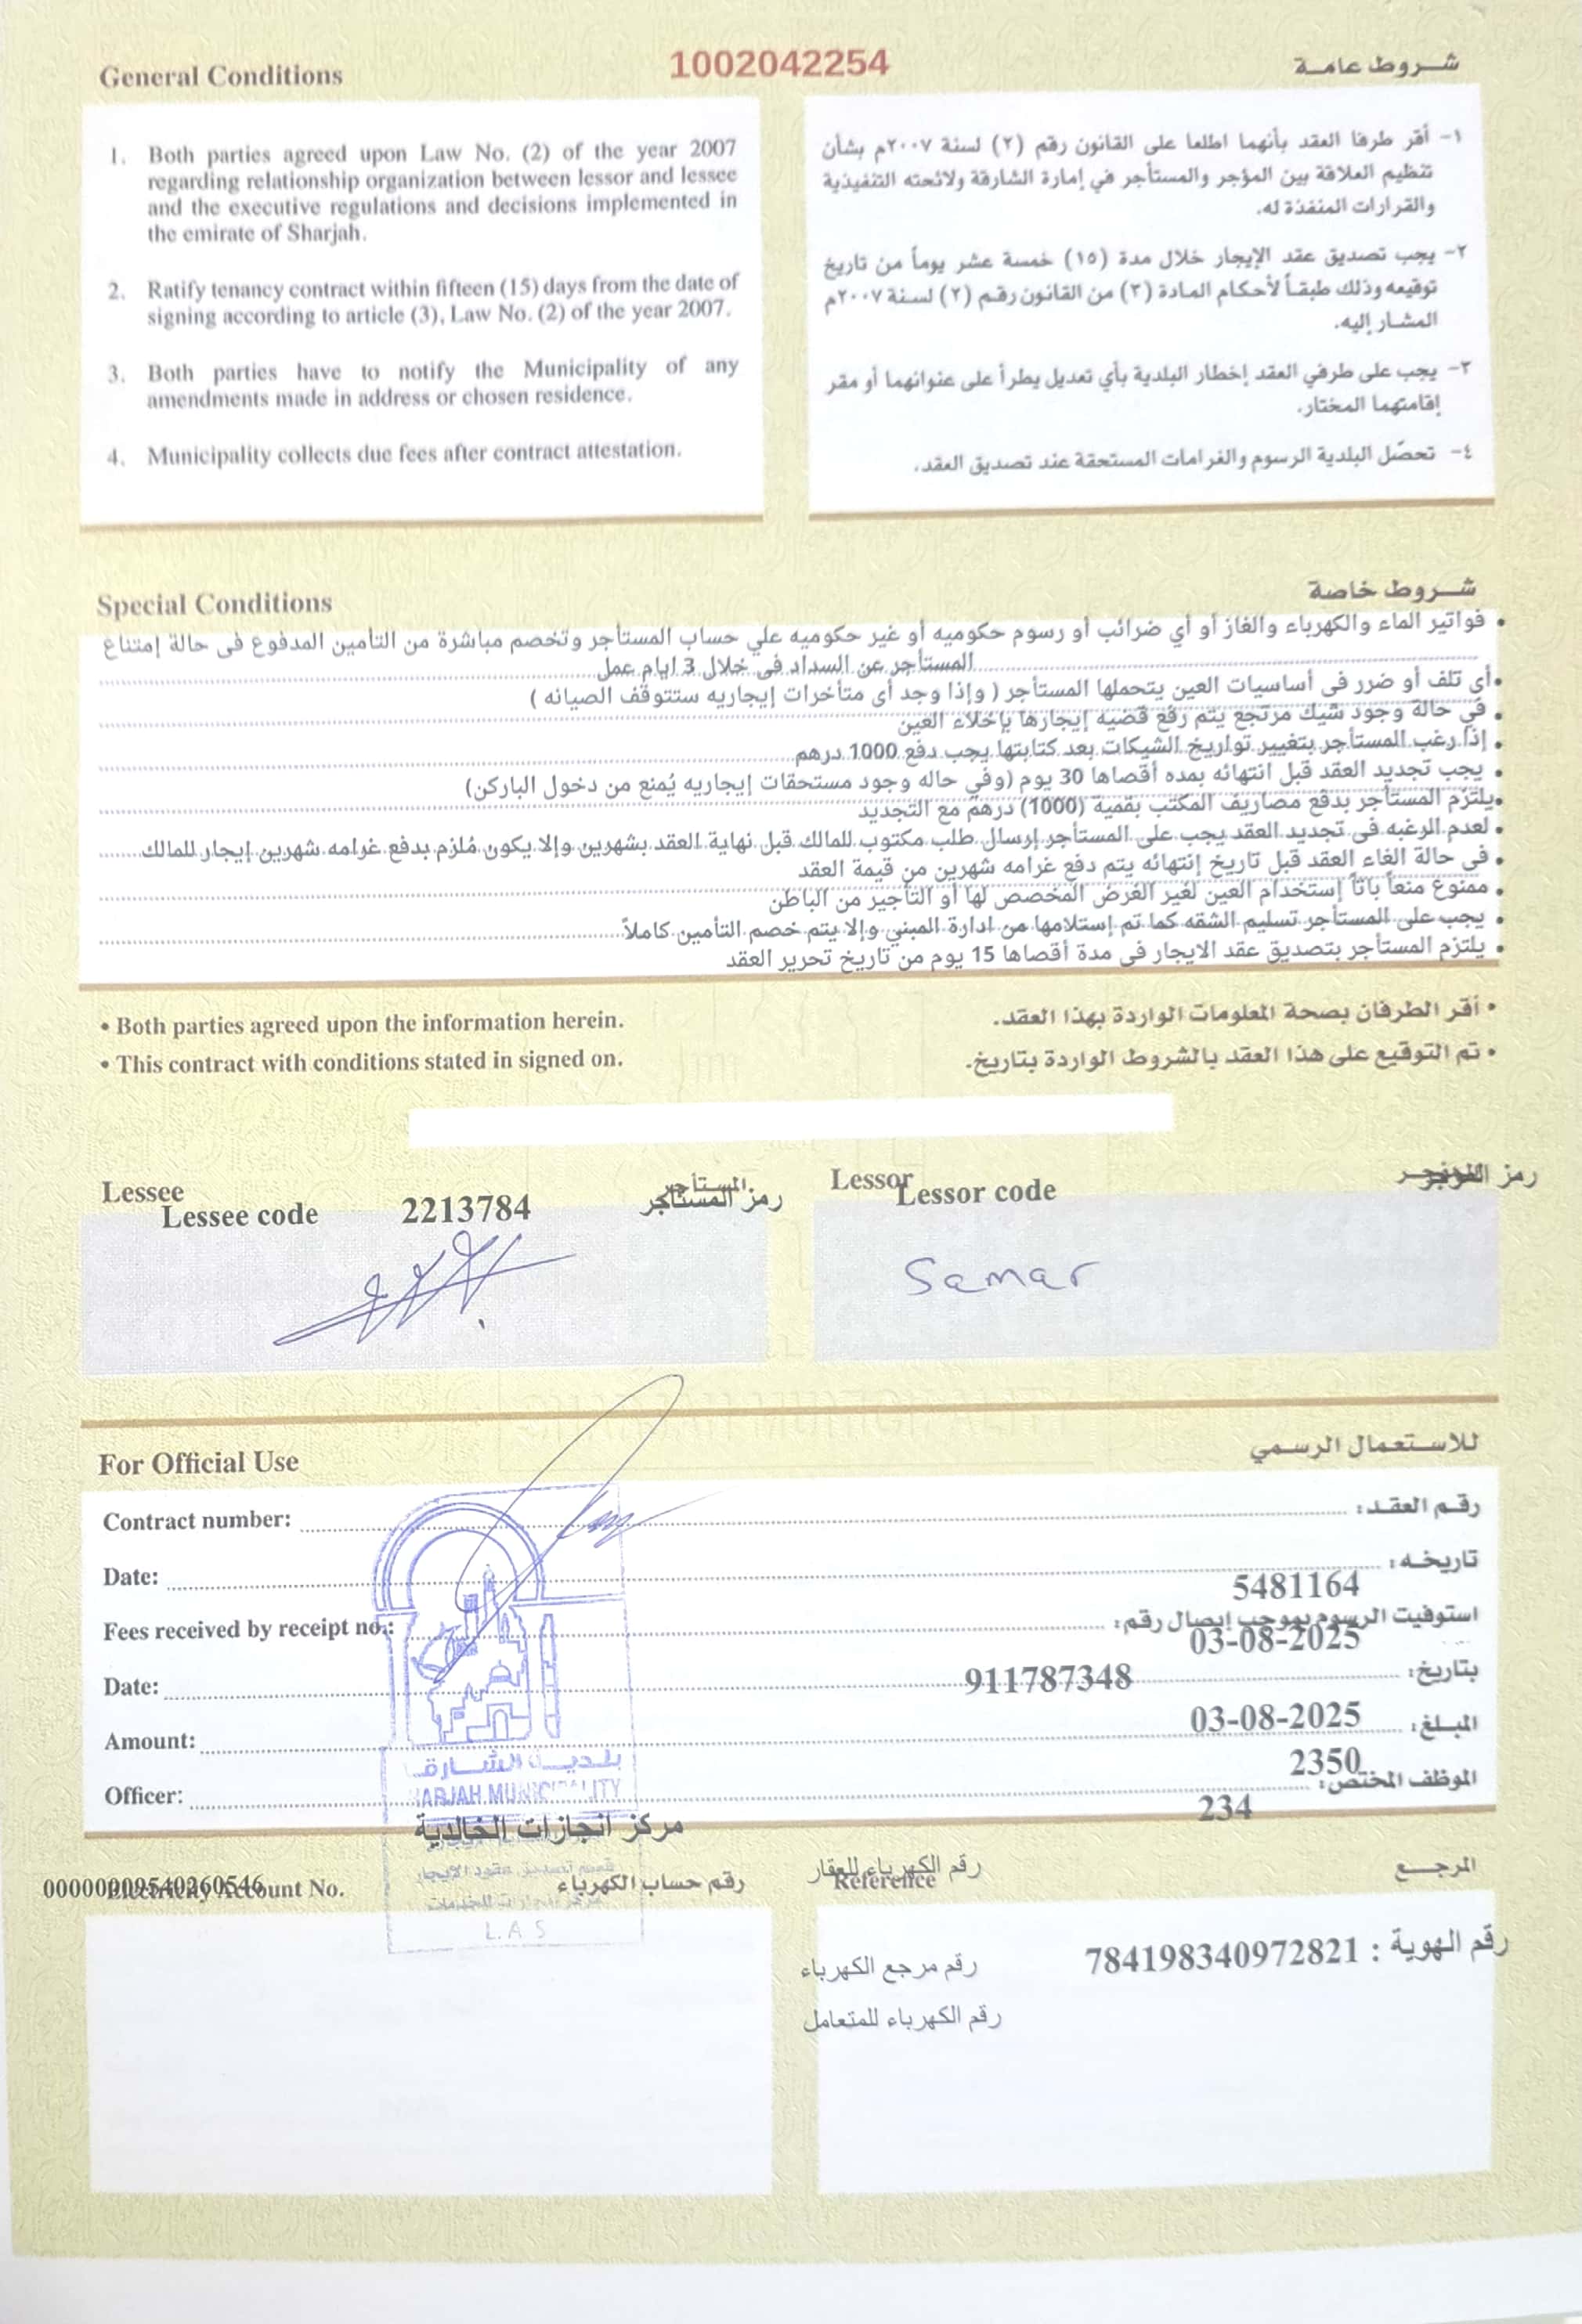 1002042254
General Conditions
شروط عامة
1. Both parties agreed upon Law No. (2) of the year 2007
regarding relationship organization between lessor and lessee
and the executive regulations and decisions implemented in
the emirate of Sharjah.
2. Ratify tenancy contract within fifteen (15) days from the date of
signing according to article (3), Law No. (2) of the year 2007.
3. Both parties have to notify the Municipality of any
amendments made in address or chosen residence.
4. Municipality collects due fees after contract attestation.
١- أقر طرفا العقد بأنهما اطلعا على القانون رقم (٢) لسنة ٢٠٠٧م بشأن
تنظيم العلاقة بين المؤجر والمستأجر في إمارة الشارقة ولائحته التنفيذية
والقرارات المنفذة له.
٢- يجب تصديق عقد الإيجار خلال مدة (١٥) خمسة عشر يوماً من تاريخ
توقيعه وذلك طبقاً لأحكام المادة (٣) من القانون رقم (٢) لسنة ٢٠٠٧م
المشار إليه.
٣- يجب على طرفي العقد إخطار البلدية بأي تعديل يطرأ على عنوانهما أو مقر
إقامتهما المختار.
٤- تحصّل البلدية الرسوم والغرامات المستحقة عند تصديق العقد.
Special Conditions
شروط خاصة
• فواتير الماء والكهرباء والغاز أو أي ضرائب أو رسوم حكوميه أو غير حكوميه علي حساب المستأجر وتخصم مباشرة من التأمين المدفوع فى حالة إمتناع
المستأجر عن السداد فى خلال 3 ايام عمل
• أى تلف أو ضرر فى أساسيات العين يتحملها المستأجر ( وإذا وجد أى متأخرات إيجاريه ستتوقف الصيانه )
• في حالة وجود شيك مرتجع يتم رفع قضيه إيجارها بإخلاء العين
• إذا رغب المستأجر بتغيير تواريخ الشيكات بعد كتابتها يجب دفع 1000 درهم
• يجب تجديد العقد قبل انتهائه بمده أقصاها 30 يوم (وفي حاله وجود مستحقات إيجاريه يُمنع من دخول الباركن)
• يلتزم المستأجر بدفع مصاريف المكتب بقمية (1000) درهم مع التجديد
• لعدم الرغبه فى تجديد العقد يجب على المستأجر إرسال طلب مكتوب للمالك قبل نهاية العقد بشهرين وإلا يكون مُلزم بدفع غرامه شهرين إيجار للمالك
• فى حالة الغاء العقد قبل تاريخ إنتهائه يتم دفع غرامه شهرين من قيمة العقد
• ممنوع منعاً باتاً إستخدام العين لغير الغرض المخصص لها أو التأجير من الباطن
• يجب على المستأجر تسليم الشقه كما تم إستلامها من ادارة المبني وإلا يتم خصم التأمين كاملاً
• يلتزم المستأجر بتصديق عقد الايجار فى مدة أقصاها 15 يوم من تاريخ تحرير العقد
• Both parties agreed upon the information herein.
• أقر الطرفان بصحة المعلومات الواردة بهذا العقد.
• This contract with conditions stated in signed on.
• تم التوقيع على هذا العقد بالشروط الواردة بتاريخ.
Lessee
المستأجر
Lessee code 2213784 رمز المستأجر
Lessor
Lessor code رمز المؤجر
Samar
For Official Use
للاستعمال الرسمي
Contract number: رقم العقد:
Date: تاريخه:
5481164
Fees received by receipt no.: استوفيت الرسوم بموجب إيصال رقم:
03-08-2025
Date: بتاريخ:
911787348
03-08-2025
Amount: المبلغ:
2350
Officer: الموظف المختص:
234
بلدية الشارقة
SHARJAH MUNICIPALITY
مركز انجازات الخالدية
قسم تصديق عقود الايجار
L.A.S
00000009540260546
Electricity Account No. رقم حساب الكهرباء
رقم الكهرباء للعقار
Reference المرجع
رقم الهوية : 784198340972821
رقم مرجع الكهرباء
رقم الكهرباء للمتعامل